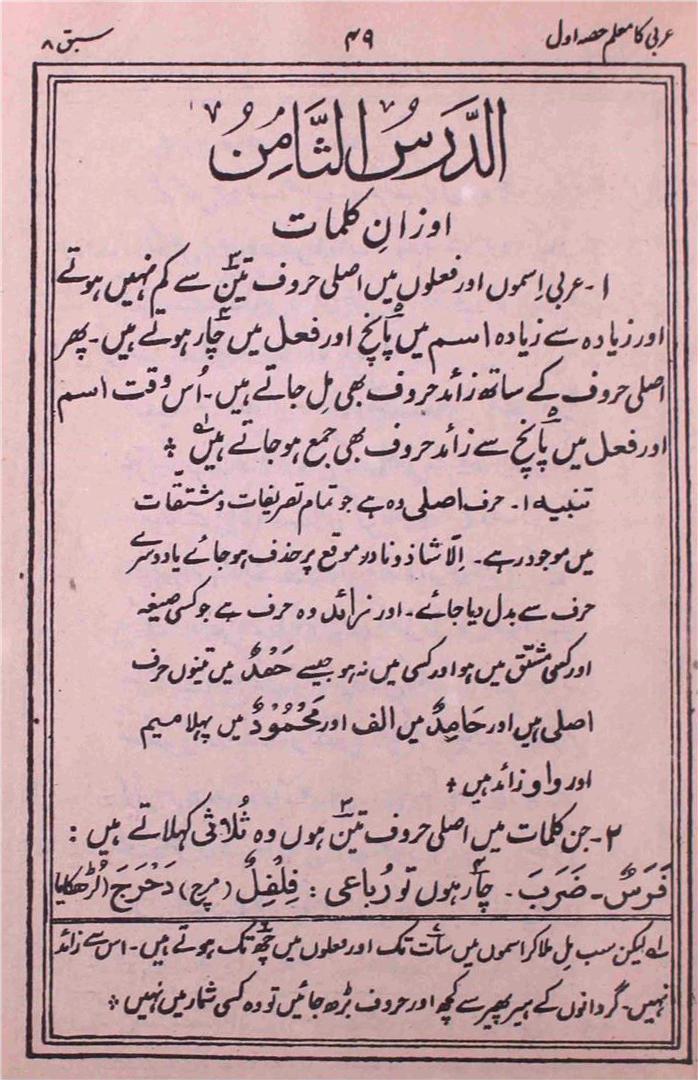 عربی کا معلم حصہ اول ۴۹ سبق ۸
الدَّرَسُ الثَّامِنُ
اوزانِ کلمات
۱- عربی اِسموں اور فعلوں میں اصلی حروف تین۳ سے کم نہیں ہوتے
اور زیادہ سے زیادہ اسم میں پانچ۵ اور فعل میں چار۴ ہوتے ہیں۔ پھر
اصلی حروف کے ساتھ زائد حروف بھی مِل جاتے ہیں۔ اُس وقت اسم
اور فعل میں پانچ۵ سے زائد حروف بھی جمع ہو جاتے ہیں لہ ٭
تنبیہ ۱۔ حرف اصلی وہ ہے جو تمام تصریفات و مشتقات
میں موجود رہے۔ اِلّا شاذ و نادر موقع پر حذف ہو جائے یا دوسرے
حرف سے بدل دیا جائے۔ اور زائد وہ حرف ہے جو کسی صیغہ
اور کسی مشتق میں ہو اور کسی میں نہ ہو جیسے حَمْدٌ میں تینوں حرف
اصلی ہیں اور حَامِدٌ میں الف اور مَحْمُوْدٌ میں پہلا میم
اور واو زائد ہیں ٭
۲- جن کلمات میں اصلی حروف تین۳ ہوں وہ ثُلاثی کہلاتے ہیں:
فَرَسٌ۔ ضَرَبَ۔ چار۴ ہوں تو رُباعی: فِلْفِلٌ (مرچ) دَحْرَجَ (لُڑھکایا
لہ لیکن سب مِل ملا کر اسموں میں سات۷ تک اور فعلوں میں چھ۶ تک ہوتے ہیں۔ اس سے زائد
نہیں۔ گردانوں کے ہیر پھیر سے کچھ اور حروف بڑھ جائیں تو وہ کسی شمار میں نہیں ٭